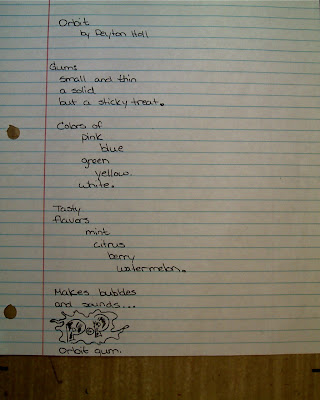 Orbit
by Peyton Hall
Gum:
small and thin
a solid
but a sticky treat.
Colors of
pink
blue
green
yellow
white.
Tasty
flavors
mint
citrus
berry
watermelon.
Makes bubbles
and sounds...
POP
Orbit gum.